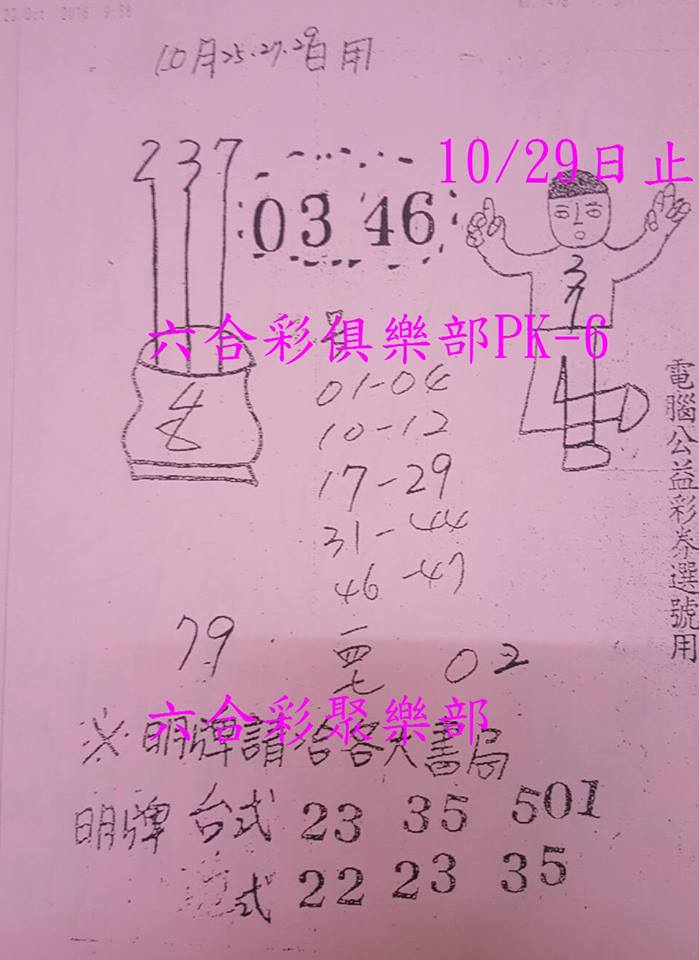 22 Oct 2016 9:58
10月25.27.29日用
237
10/29日止
03 46
37
六合彩俱樂部PK-6
48
01-04
10-12
17-29
31-44
46-47
79
一四七
02
電腦公益彩券選號用
六合彩聚樂部
※明牌請洽各大書局
明牌 台式 23 35 501
式 22 23 35